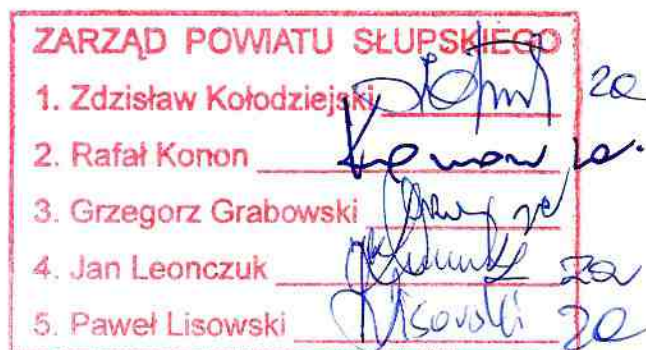 ZARZĄD POWIATU SŁUPSKIEGO
1. Zdzisław Kołodziejski za
2. Rafał Konon Konon za.
3. Grzegorz Grabowski za
4. Jan Leonczuk za
5. Paweł Lisowski Lisowski za